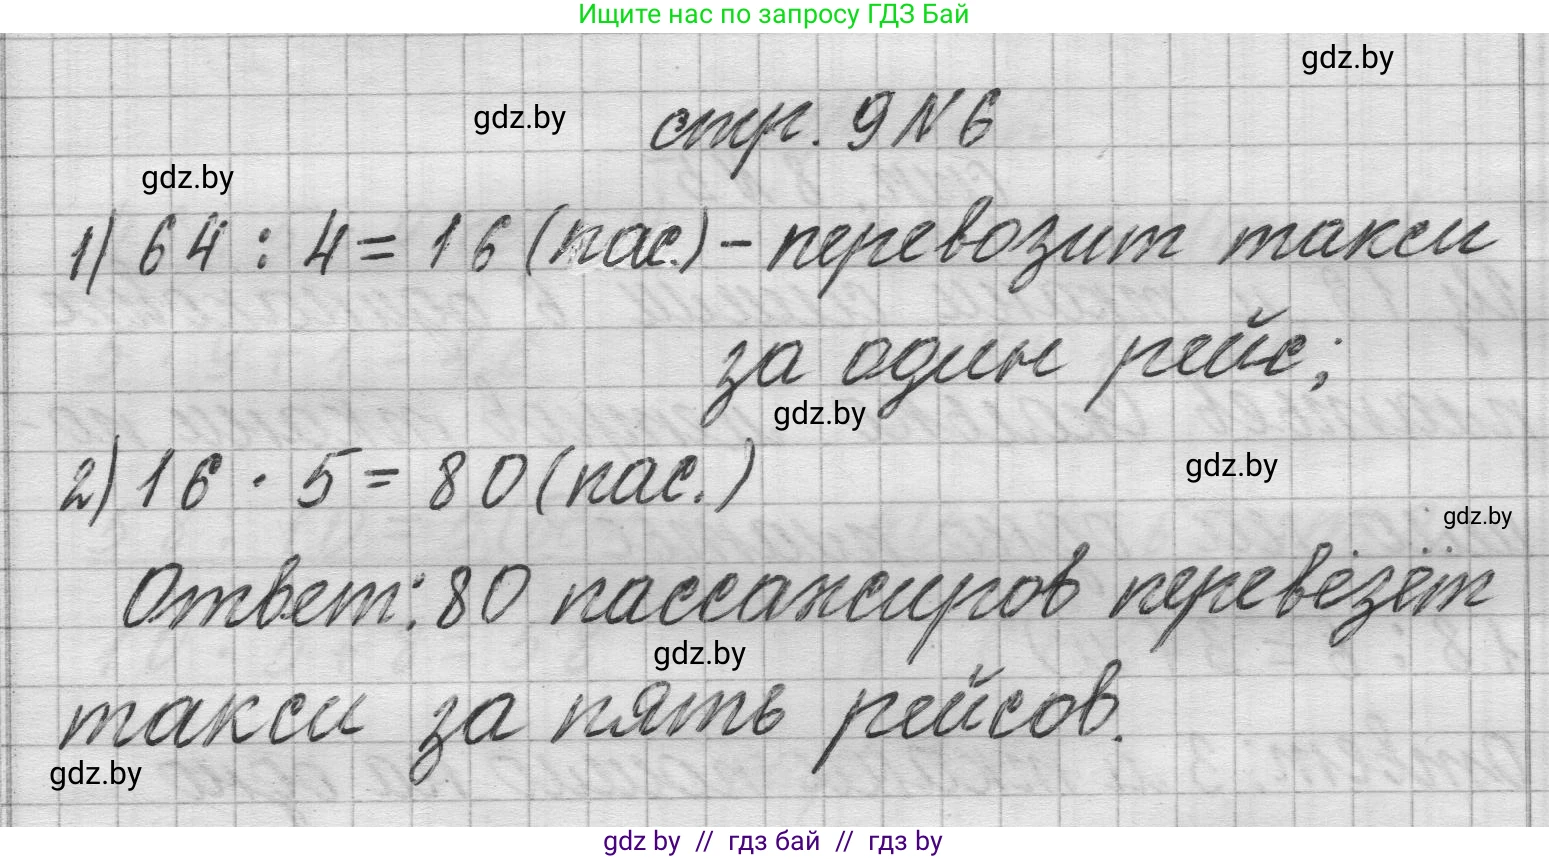 Ищите нас по запросу ГДЗ Бай
gdz.by
gdz.by
стр. 9 № 6
gdz.by
1) 64 : 4 = 16 (пас.) – перевозит такси
за один рейс;
gdz.by
2) 16 · 5 = 80 (пас.)
gdz.by
gdz.by
Ответ: 80 пассажиров перевезёт
gdz.by
такси за пять рейсов.
gdz.by
gdz by // гдз бай // гдз by